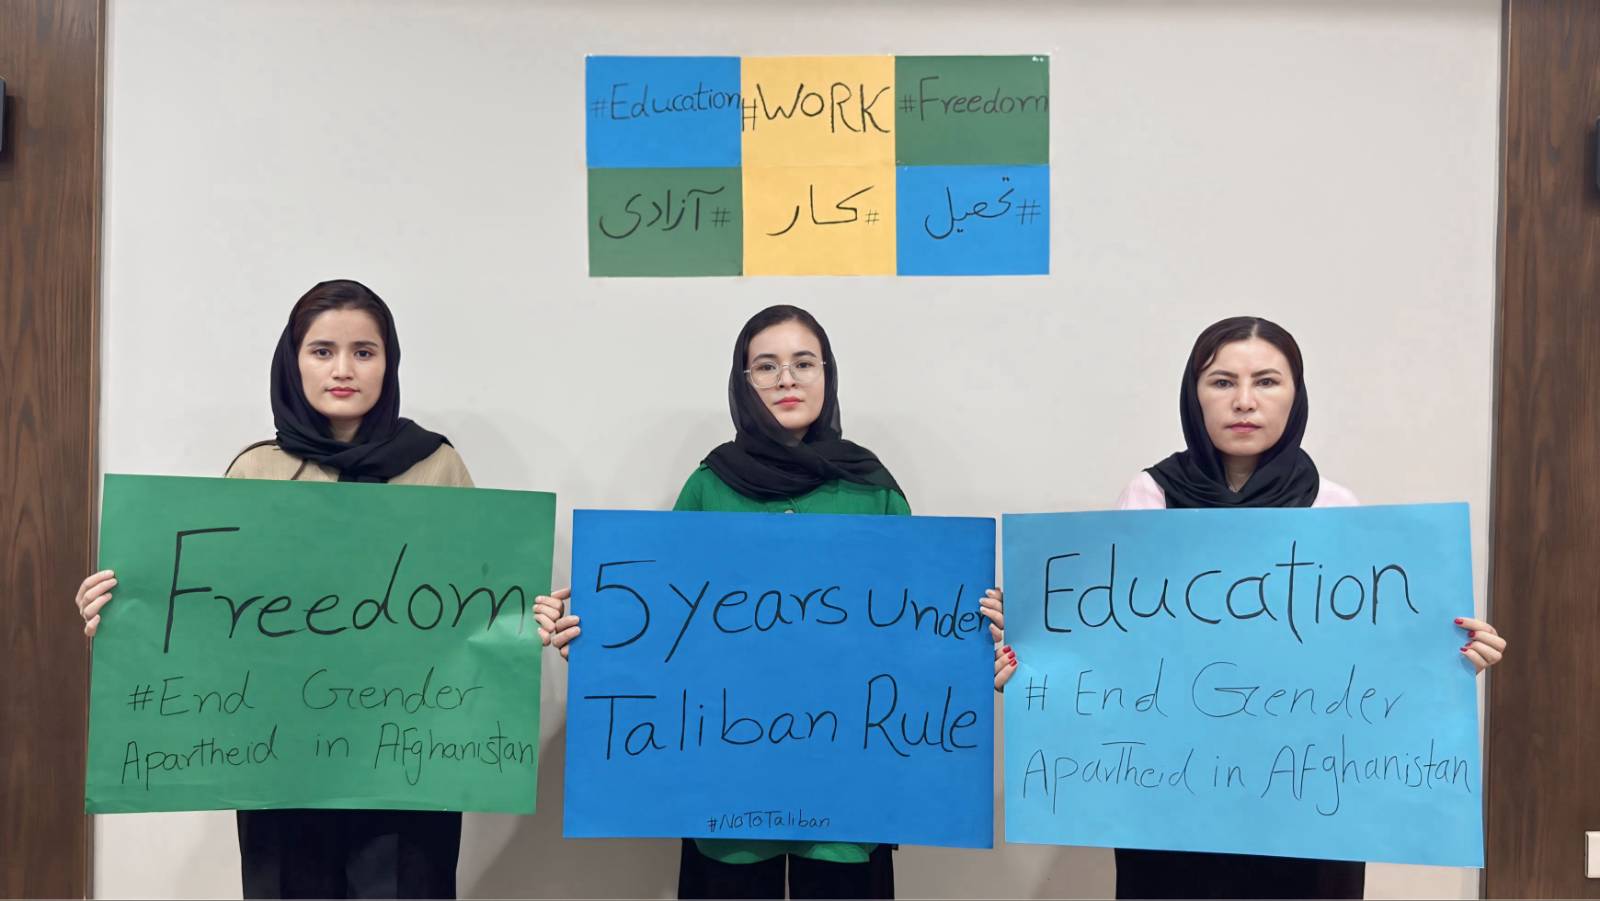 #Education #WORK #Freedom
#آزادی #کار #تحصیل
Freedom
#End Gender
Apartheid in Afghanistan
5 years Under
Taliban Rule
#NoToTaliban
Education
# End Gender
Apartheid in Afghanistan